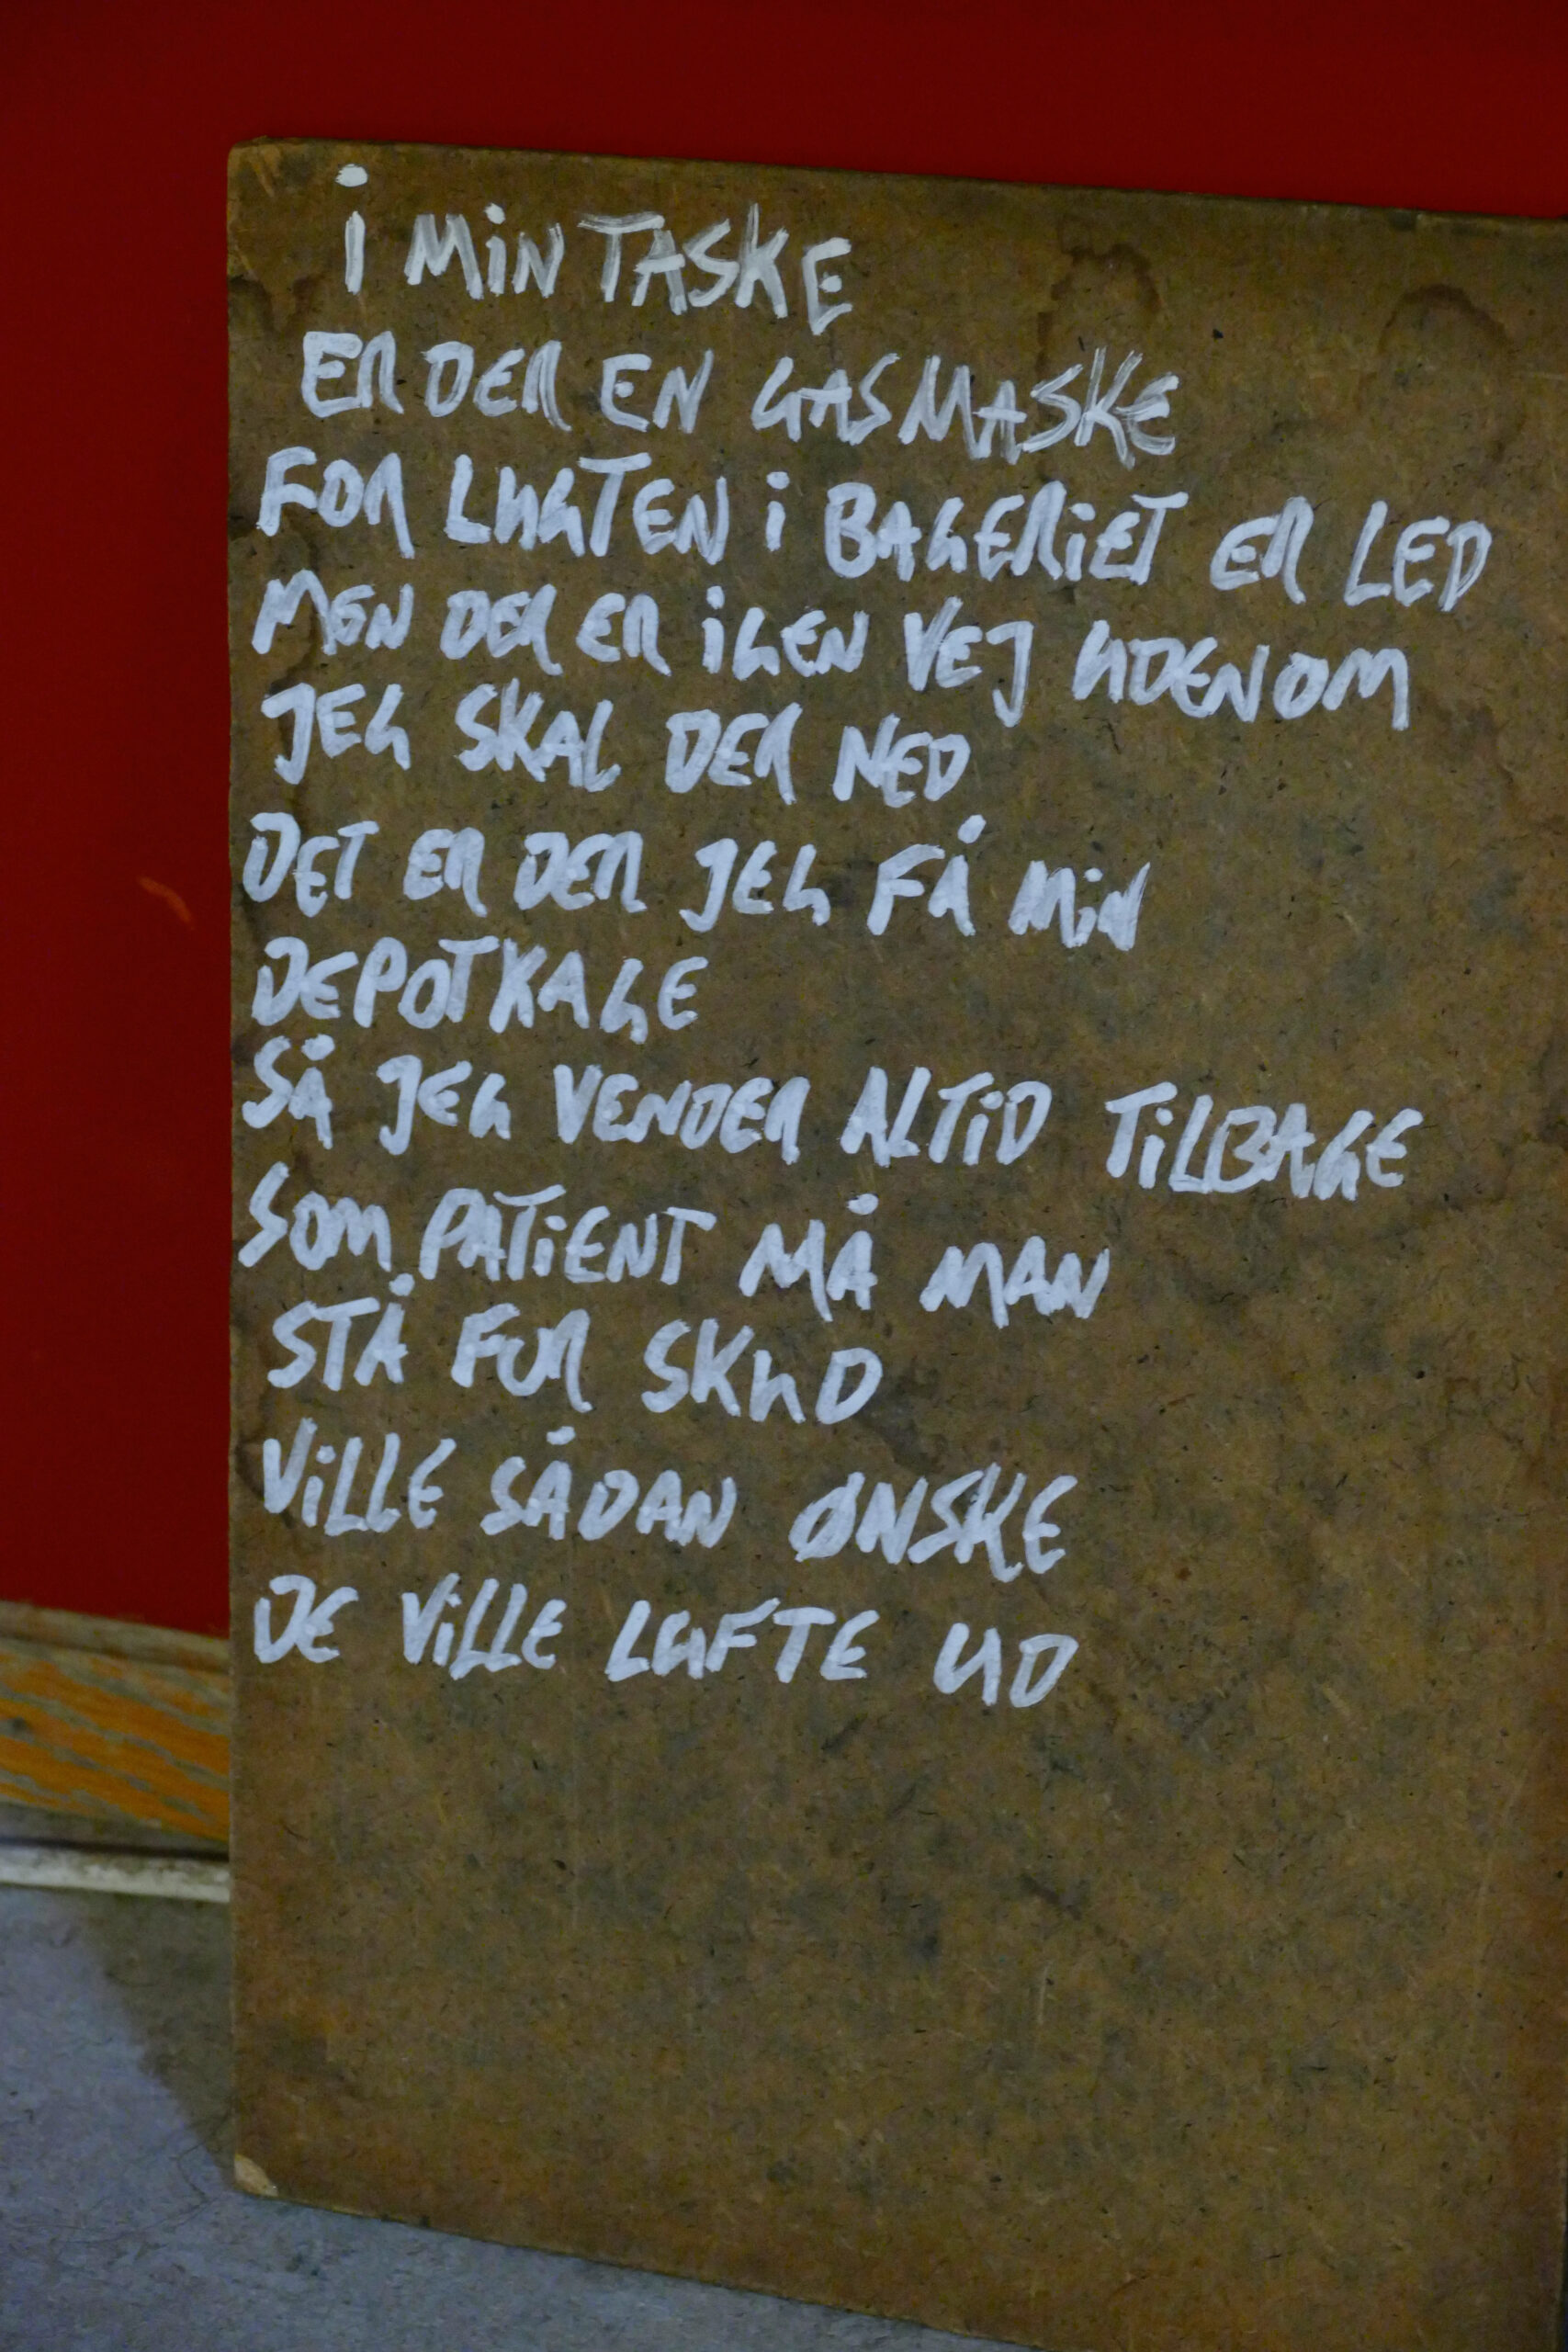 i MiN TASKE
ER DER EN GASMASKE
FOR LUGTEN i BAGERiET ER LED
MEN DER ER iGEN VEJ UDENOM
JEG SKAL DER NED
DET ER DER JEG FÅ MiN
DEPOTKAGE
SÅ JEG VENDER ALTiD TiLBAGE
SOM PATiENT MÅ MAN
STÅ FOR SKUD
ViLLE SÅDAN ØNSKE
DE ViLLE LUFTE UD